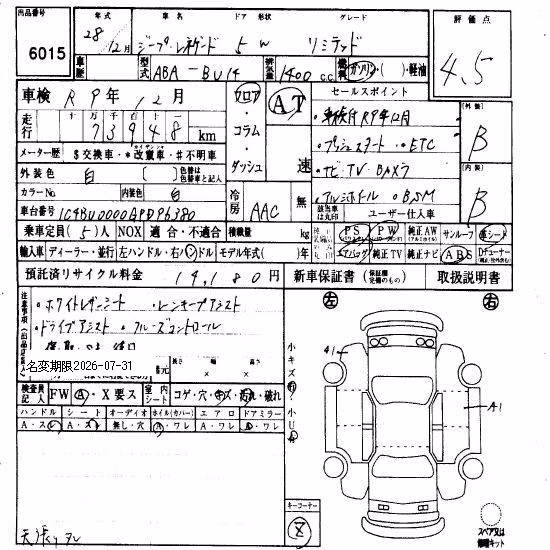 出品番号 年式 車名 ドア 形状 グレード 評価点
6015 28年 12月 ジープ・レネゲード 5 W リミテッド 4.5
車歴 型式 ABA-BU14 排気量 1400 c.c. 燃料 ガソリン・( )・軽油
車検 R9年 12月 フロア・コラム・ダッシュ AT 速 セールスポイント
走行 十万 万 千 百 十 一
73948 km
・車検付R9年12月 外装 B
・プッシュスタート ・ETC
メーター歴 $交換車・*改ざん車・#不明車
・ナビ・TV・Bカメラ 内装 B
外装色 白 ( ) 色替は色替車と記入
・アルミホイール ・BSM
カラーNo. 内装色 白 冷房 AAC 無 該当車は丸印 ユーザー仕入車
車台番号 1C4BU0000GPD96380
乗車定員 ( 5 )人 NOX 適合・不適合 積載量 kg 純正装備品 PS PW 純正AW サンルーフ 革シート
輸入車 ディーラー・並行 左ハンドル・右ハンドル モデル年式( )年 エアバッグ 純正TV 純正ナビ ABS
預託済リサイクル料金 19,180円 新車保証書 (保証継続可能のもの) 取扱説明書
注意事項(出品店記入)
・ホワイトレザーシート ・レーンキープアシスト
・ドライブアシスト ・クルーズコントロール
名変期限2026-07-31
長さ 幅 高さ
左 右
小キズ有 小U有
A1
A1
検査員記入 FW A・X要ス 室内シート コゲ・穴・キズ・汚れ・破れ
ハンドル シート オーディオ ホイル(カバー) エアロ ドアミラー
A・スレ A・スレ 無し・穴 A・ワレ A・ワレ A・ワレ
天張りヌレ
キーコーナー
2
スペア又は修理キット